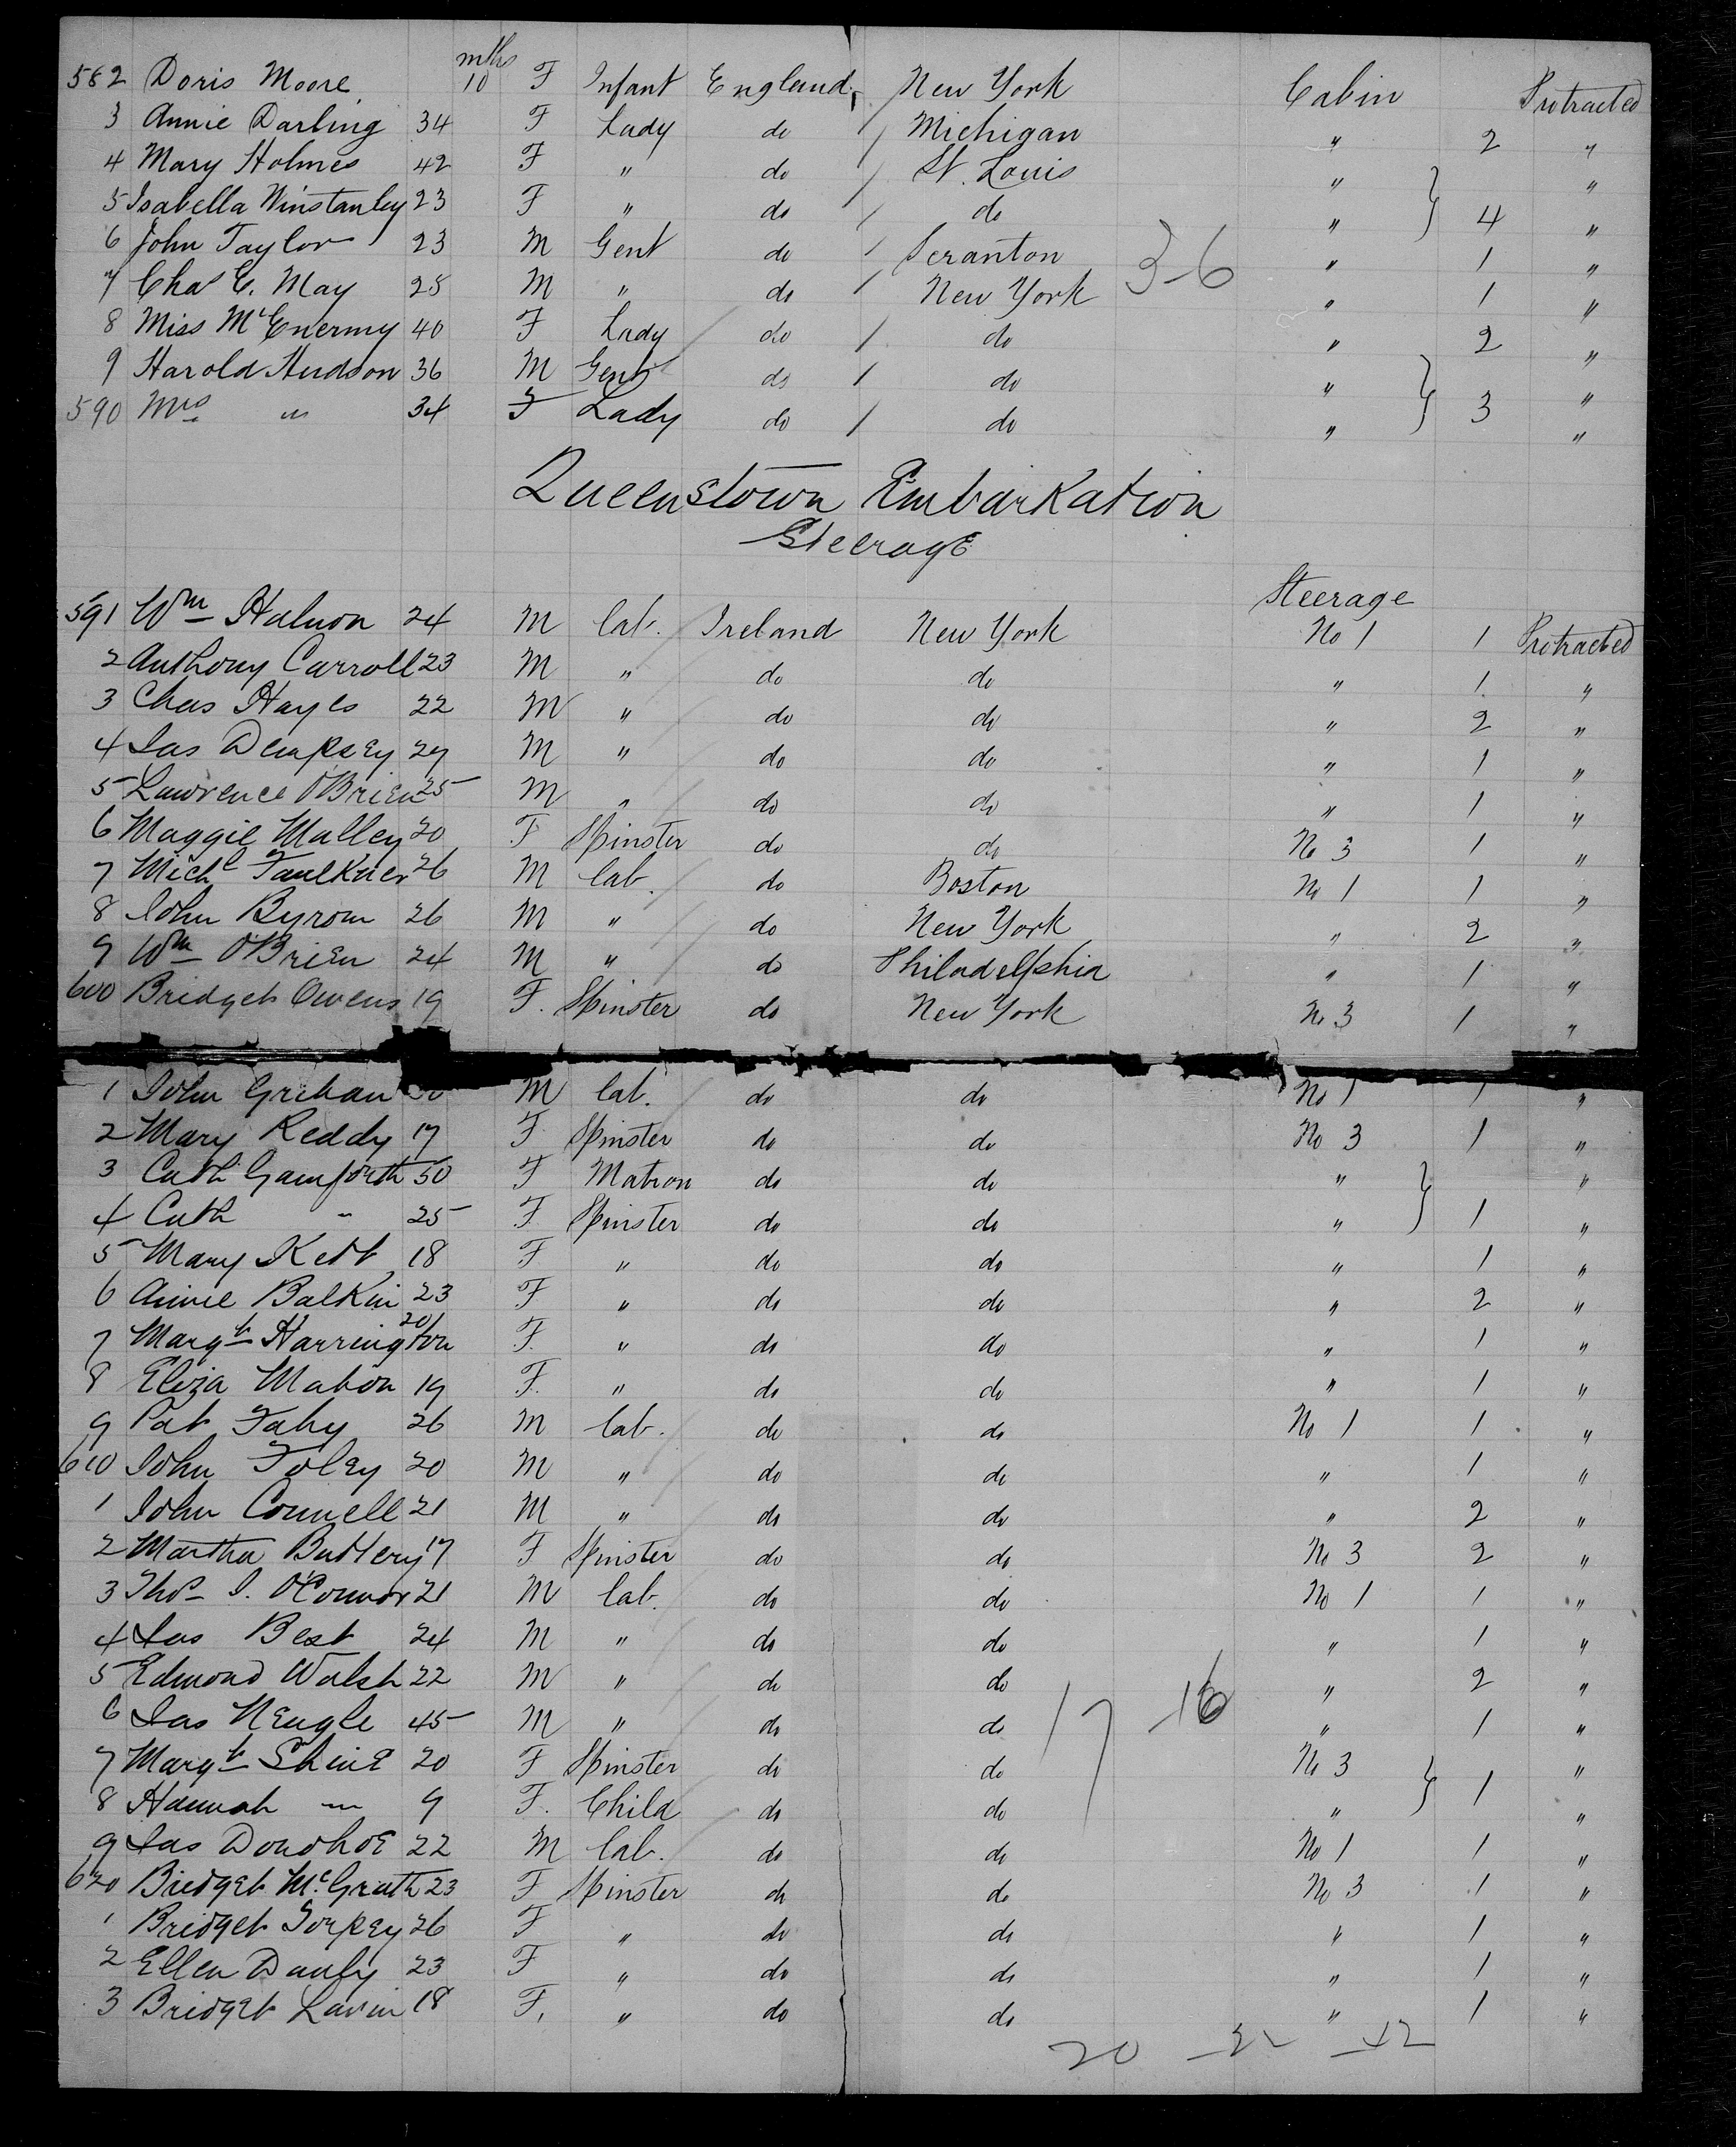 582 Doris Moore mths 10 F Infant England New York Cabin Protracted
3 Annie Darling 34 F Lady do / Michigan " 2 "
4 Mary Holmes 42 F " do / St. Louis " "
5 Isabella Winstanley 23 F " do / do " } 4 "
6 John Taylor 23 M Gent do / Scranton " 1 "
7 Chas E. May 25 M " do / New York 3-6 " 1 "
8 Miss McEnermy 40 F Lady do / do " 2 "
9 Harold Hudson 36 M Gent do / do " "
590 Mrs " 34 F Lady do / do " } 3 "
Queenstown Embarkation
Steerage
Steerage
591 Wm Halnon 24 M lab. Ireland New York No 1 1 Protracted
2 Anthony Carroll 23 M " do do " 1 "
3 Chas Hayes 22 M " do do " 2 "
4 Jas Dempsey 27 M " do do " 1 "
5 Lawrence O'Brien 25 M " do do " 1 "
6 Maggie Malley 20 F Spinster do do No 3 1 "
7 Michl Faulkner 26 M lab. do Boston No 1 1 "
8 John Byrom 26 M " do New York " 2 "
9 Wm O'Brien 24 M " do Philadelphia " 1 "
600 Bridget Owens 19 F. Spinster do New York No 3 1 "
1 John Grehan M lab. do do No 1 1 "
2 Mary Reddy 17 F Spinster do do No 3 1 "
3 Cath Gamforth 50 F Matron do do " "
4 Cath " 25 F Spinster do do " } 1 "
5 Mary Kett 18 F " do do " 1 "
6 Annie Balkin 23 F " do do " 2 "
7 Margt Harrington 20 F. " do do " 1 "
8 Eliza Mahon 19 F. " do do " 1 "
9 Pat Fahy 26 M lab. do do No 1 1 "
610 John Foley 20 M " do do " 1 "
1 John Connell 21 M " do do " 2 "
2 Martha Buttery 17 F Spinster do do No 3 2 "
3 Thos J. O'Connor 21 M lab. do do No 1 1 "
4 Jas Best 24 M " do do " 1 "
5 Edmond Walsh 22 M " do do " 2 "
6 Jas Neagle 45 M " do do 17 - 16 " 1 "
7 Margt Shine 20 F Spinster do do No 3 "
8 Hannah " 9 F. Child do do " } 1 "
9 Jas Donohoe 22 M lab. do do No 1 1 "
620 Bridget McGrath 23 F Spinster do do No 3 1 "
1 Bridget Torpey 26 F " do do " 1 "
2 Ellen Dauly 23 F " do do " 1 "
3 Bridget Lavin 18 F. " do do " 1 "
20 22 42